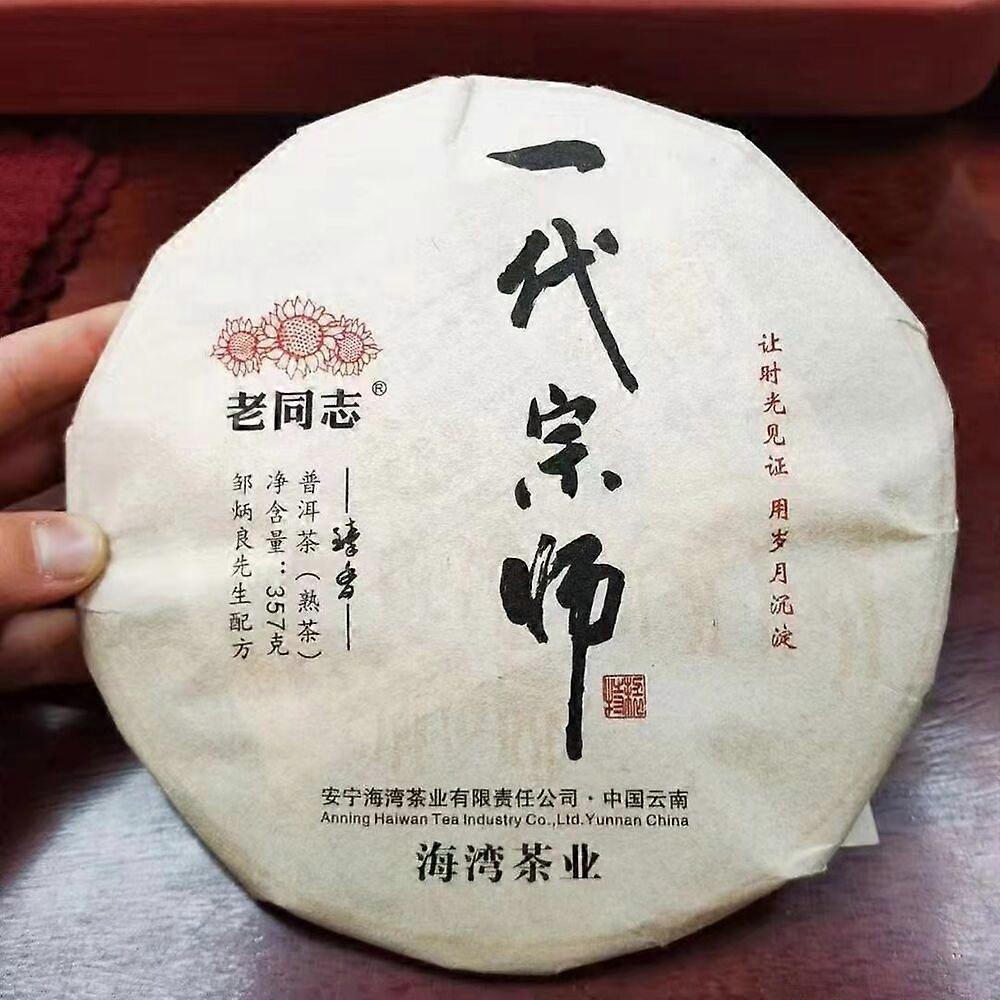 一代宗师
让时光见证 用岁月沉淀
老同志®
臻香
普洱茶(熟茶)
净含量：357克
邹炳良先生配方
安宁海湾茶业有限责任公司·中国云南
Anning Haiwan Tea Industry Co.,Ltd.Yunnan China
海湾茶业